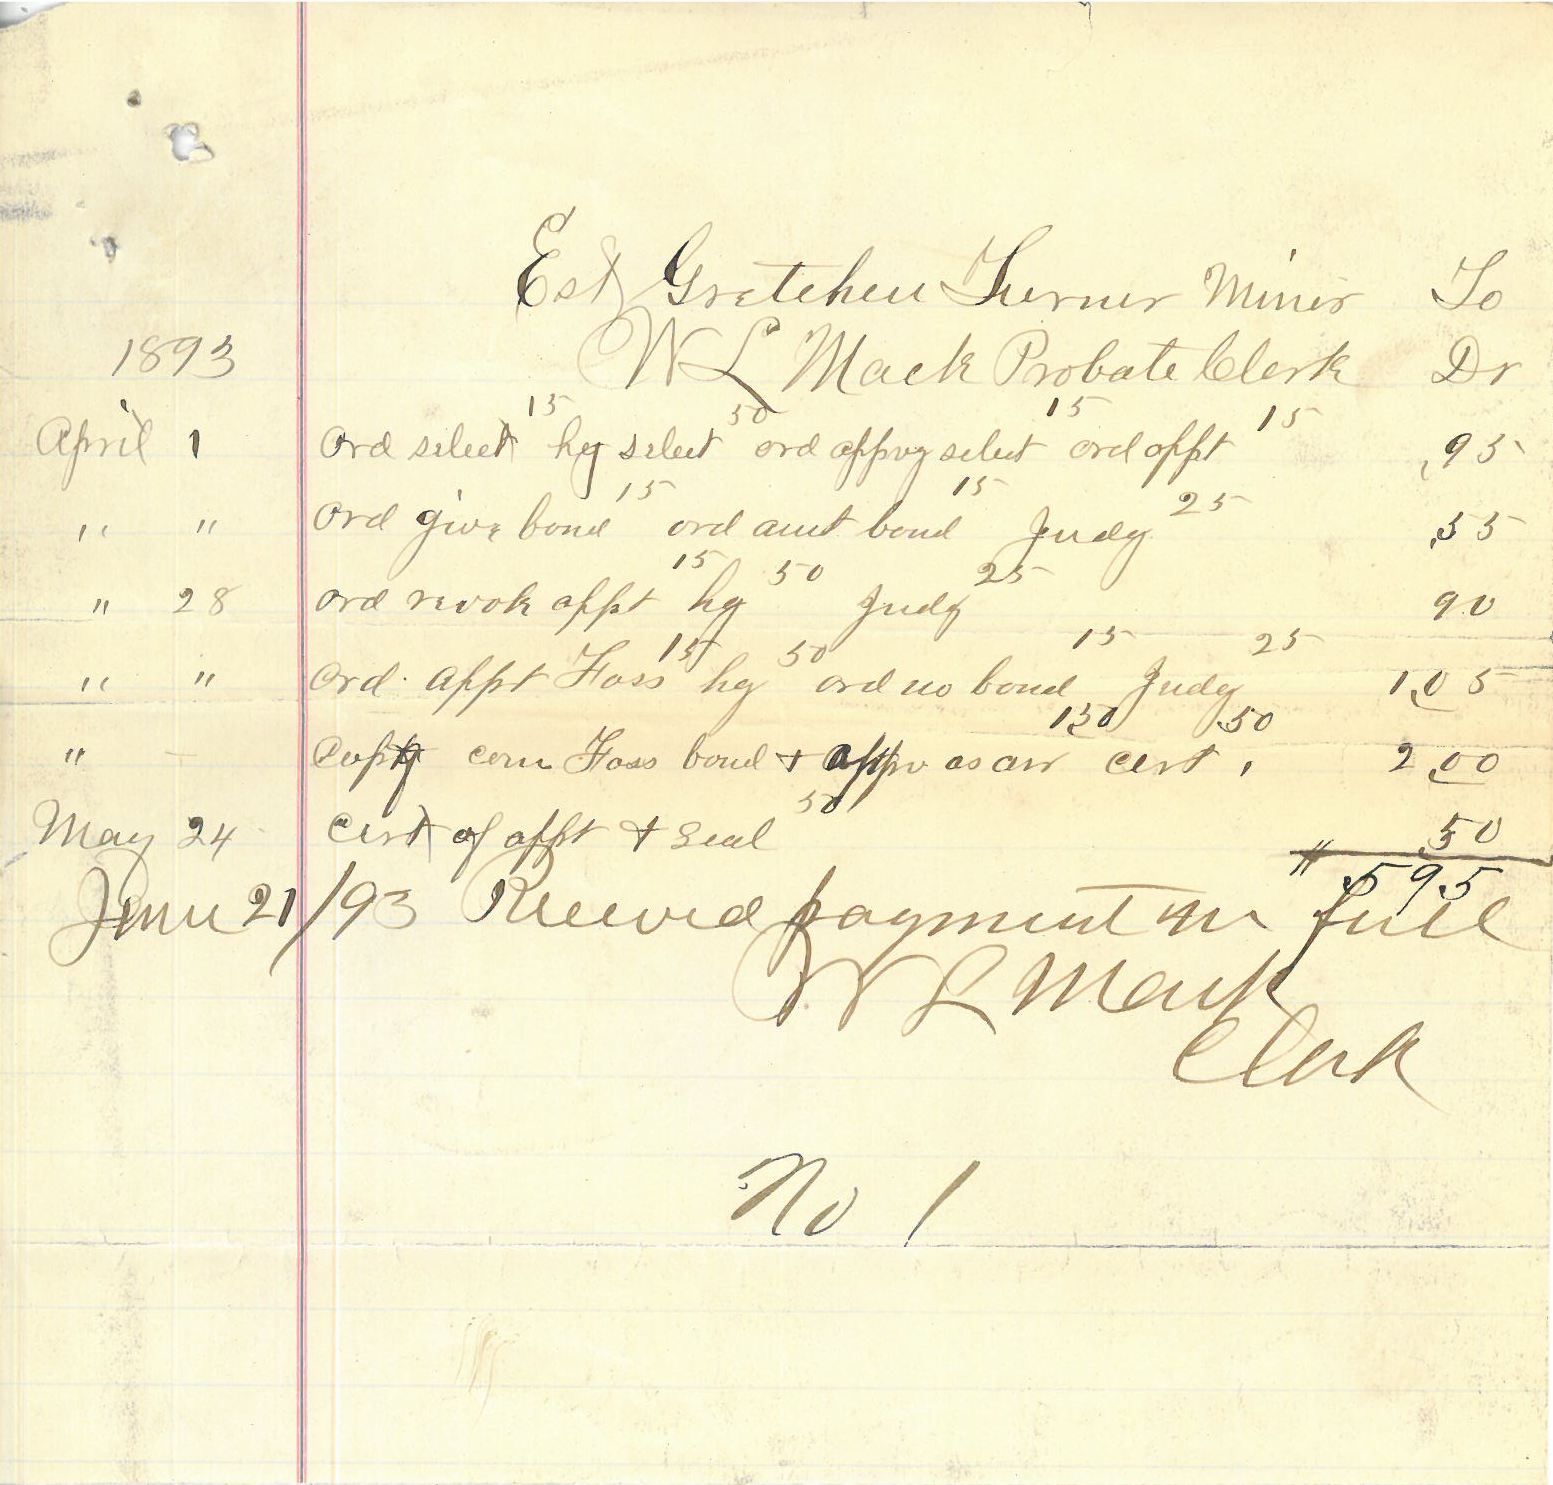 Est Gretchen Turner Minor To
1893 W L Mack Probate Clerk Dr
15 50 15 15
April 1 Ord select hg select ord apprvg select ord appt .95
15 15 25
" " Ord give bond ord amt bond Judg .55
15 50 25
" 28 Ord revok appt hg Judg 90
15 50 15 25
" " Ord. appt Foss hg ord no bond Judg 1.05
150 50
" - Copy com Foss bond + apprv as arr cert. 2.00
50
May 24 Cert of appt + seal .50
5.95
June 21/93 Received payment in full
W L Mack
Clerk
No 1